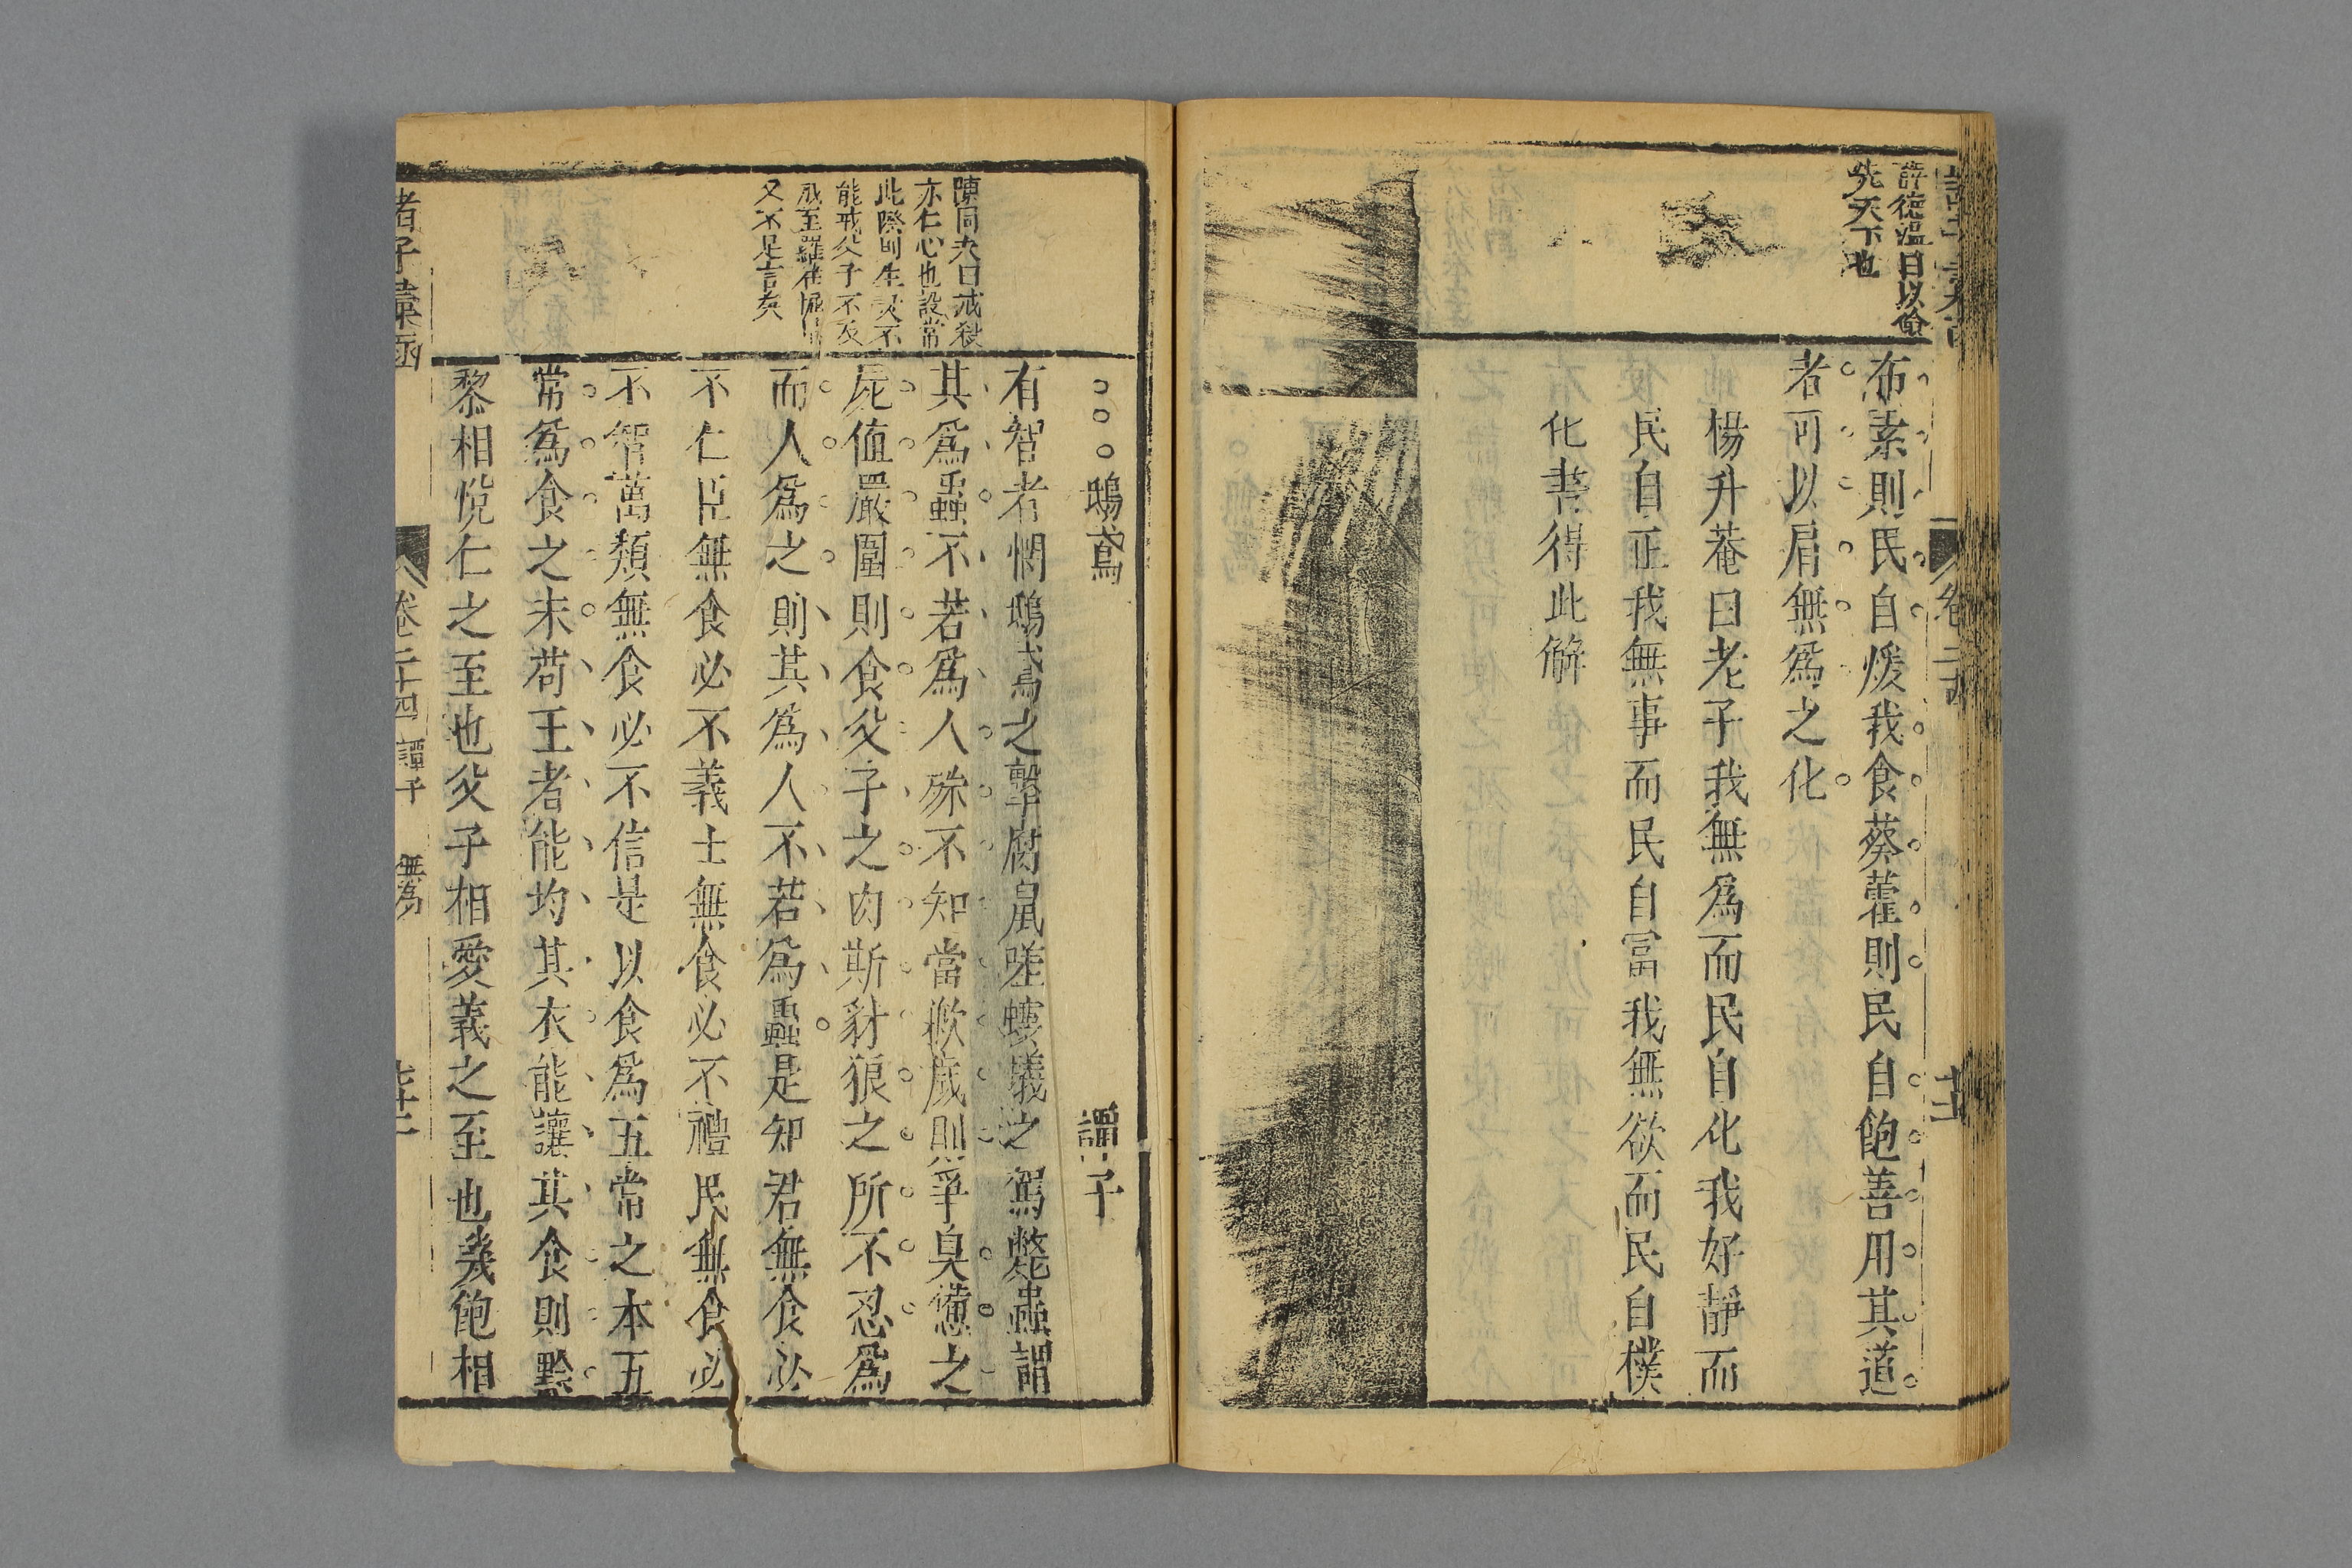 許德溫曰以儉
先天下也
布素則民自煖我食葵藿則民自飽善用其道
者可以肩無爲之化
楊升菴曰老子我無爲而民自化我好靜而
民自正我無事而民自冨我無欲而民自樸
化書得此解
陳同夫曰戒殺
亦仁心也設常
此際則生靈不
能戒父子不及
又不足言矣
鴟鳶 譚子
有智者憫鴟鳶之擊腐鼠嗟螻蟻之駕斃蟲謂
其爲蟲不若爲人殊不知當歉歲則爭臭憊之
屍値嚴圍則食父子之肉斯豺狼之所不忍爲
而人爲之則其爲人不若爲蟲是知君無食必
不仁臣無食必不義士無食必不禮民無食必
不智萬類無食必不信是以食爲五常之本五
常爲食之末苟王者能均其衣能讓其食則黔
黎相悅仁之至也父子相愛義之至也幾飽相
諸子彙函 卷二十四 譚子 無爲